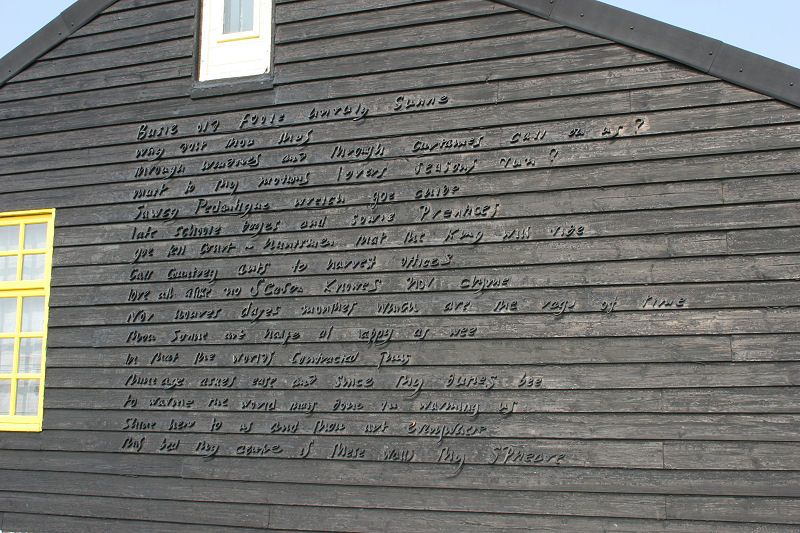 Busie old foole unruly Sunne
Why dost thou thus
Through windowes and through curtaines call on us ?
must to thy motions lovers seasons run ?
Sawcy Pedantique wretch goe chide
late schoole boyes and sowre Prentices
goe tell Court - huntsmen that the King will ride
Call Countrey ants to harvest offices
love all alike no Season knowes nor clyme
Nor houres dayes months which are the rags of time
Thou Sunne art halfe as happy as wee
In that the world's Contracted thus
Thine age askes ease and since thy duties bee
to warme the world thats done in warming us
Shine here to us and thou art everywhere
This bed thy center is these walls thy Spheare